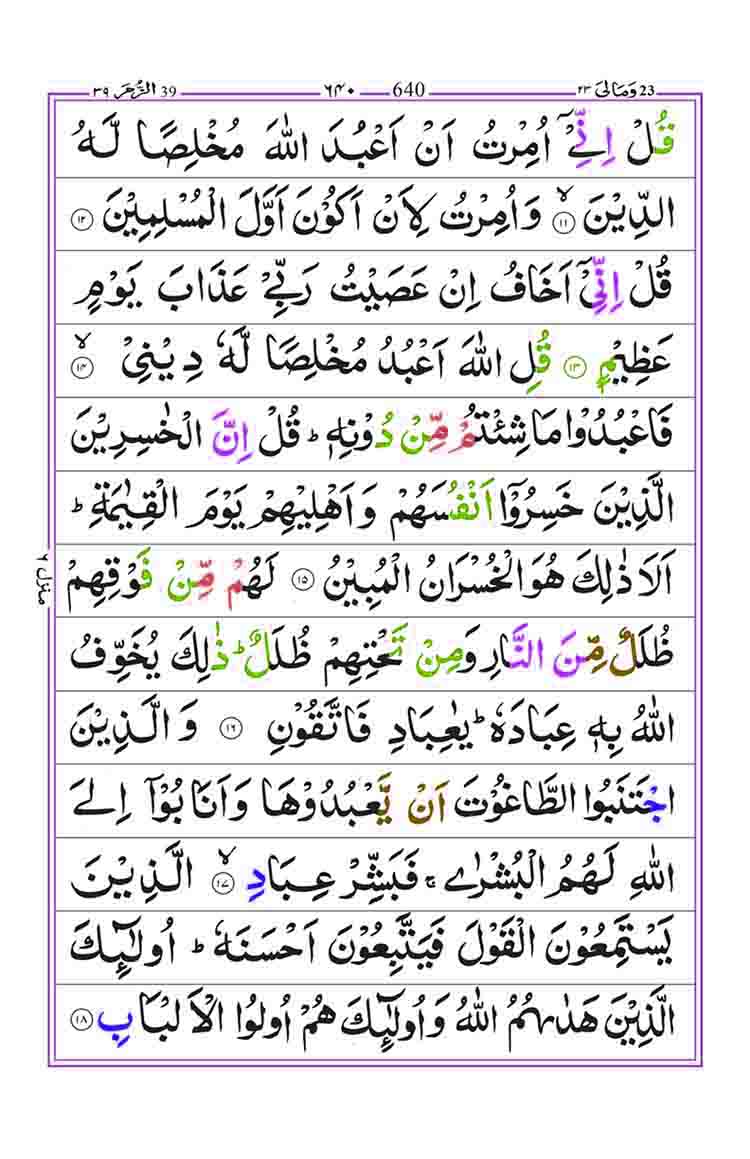 23 وَمَالِیَ ۲۳ 640 ۶۴۰ 39 الزُّمَر ۳۹
قُلْ اِنِّیْۤ اُمِرْتُ اَنْ اَعْبُدَ اللّٰهَ مُخْلِصًا لَّهُ
الدِّیْنَ ۙ۱۱ وَ اُمِرْتُ لِاَنْ اَكُوْنَ اَوَّلَ الْمُسْلِمِیْنَ ۱۲
قُلْ اِنِّیْۤ اَخَافُ اِنْ عَصَیْتُ رَبِّیْ عَذَابَ یَوْمٍ
عَظِیْمٍ ۱۳ قُلِ اللّٰهَ اَعْبُدُ مُخْلِصًا لَّهٗ دِیْنِیْ ۙ۱۴
فَاعْبُدُوْا مَا شِئْتُمْ مِّنْ دُوْنِهٖ ؕ قُلْ اِنَّ الْخٰسِرِیْنَ
الَّذِیْنَ خَسِرُوْۤا اَنْفُسَهُمْ وَ اَهْلِیْهِمْ یَوْمَ الْقِیٰمَةِ ؕ
اَلَا ذٰلِكَ هُوَ الْخُسْرَانُ الْمُبِیْنُ ۱۵ لَهُمْ مِّنْ فَوْقِهِمْ
ظُلَلٌ مِّنَ النَّارِ وَ مِنْ تَحْتِهِمْ ظُلَلٌ ؕ ذٰلِكَ یُخَوِّفُ
اللّٰهُ بِهٖ عِبَادَهٗ ؕ یٰعِبَادِ فَاتَّقُوْنِ ۱۶ وَ الَّذِیْنَ
اجْتَنَبُوا الطَّاغُوْتَ اَنْ یَّعْبُدُوْهَا وَ اَنَابُوْۤا اِلَى
اللّٰهِ لَهُمُ الْبُشْرٰى ۚ فَبَشِّرْ عِبَادِ ۙ۱۷ الَّذِیْنَ
یَسْتَمِعُوْنَ الْقَوْلَ فَیَتَّبِعُوْنَ اَحْسَنَهٗ ؕ اُولٰٓىِٕكَ
الَّذِیْنَ هَدٰىهُمُ اللّٰهُ وَ اُولٰٓىِٕكَ هُمْ اُولُوا الْاَلْبَابِ ۱۸
منزل ۶